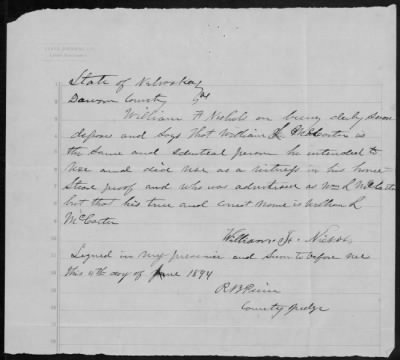 State of Nebraska
Dawson County SS
William F Nichols on being duly sworn
deposes and says that William L McCarter is
the same and identical person he intended to
use and did use as a witness in his home
stead proof and who was advertised as Wm L McCarter
but that his true and correct name is William L
McCarter
William F. Nichols
Signed in my presence and sworn to before me
this 9th day of June 1894
R B Pierce
County Judge